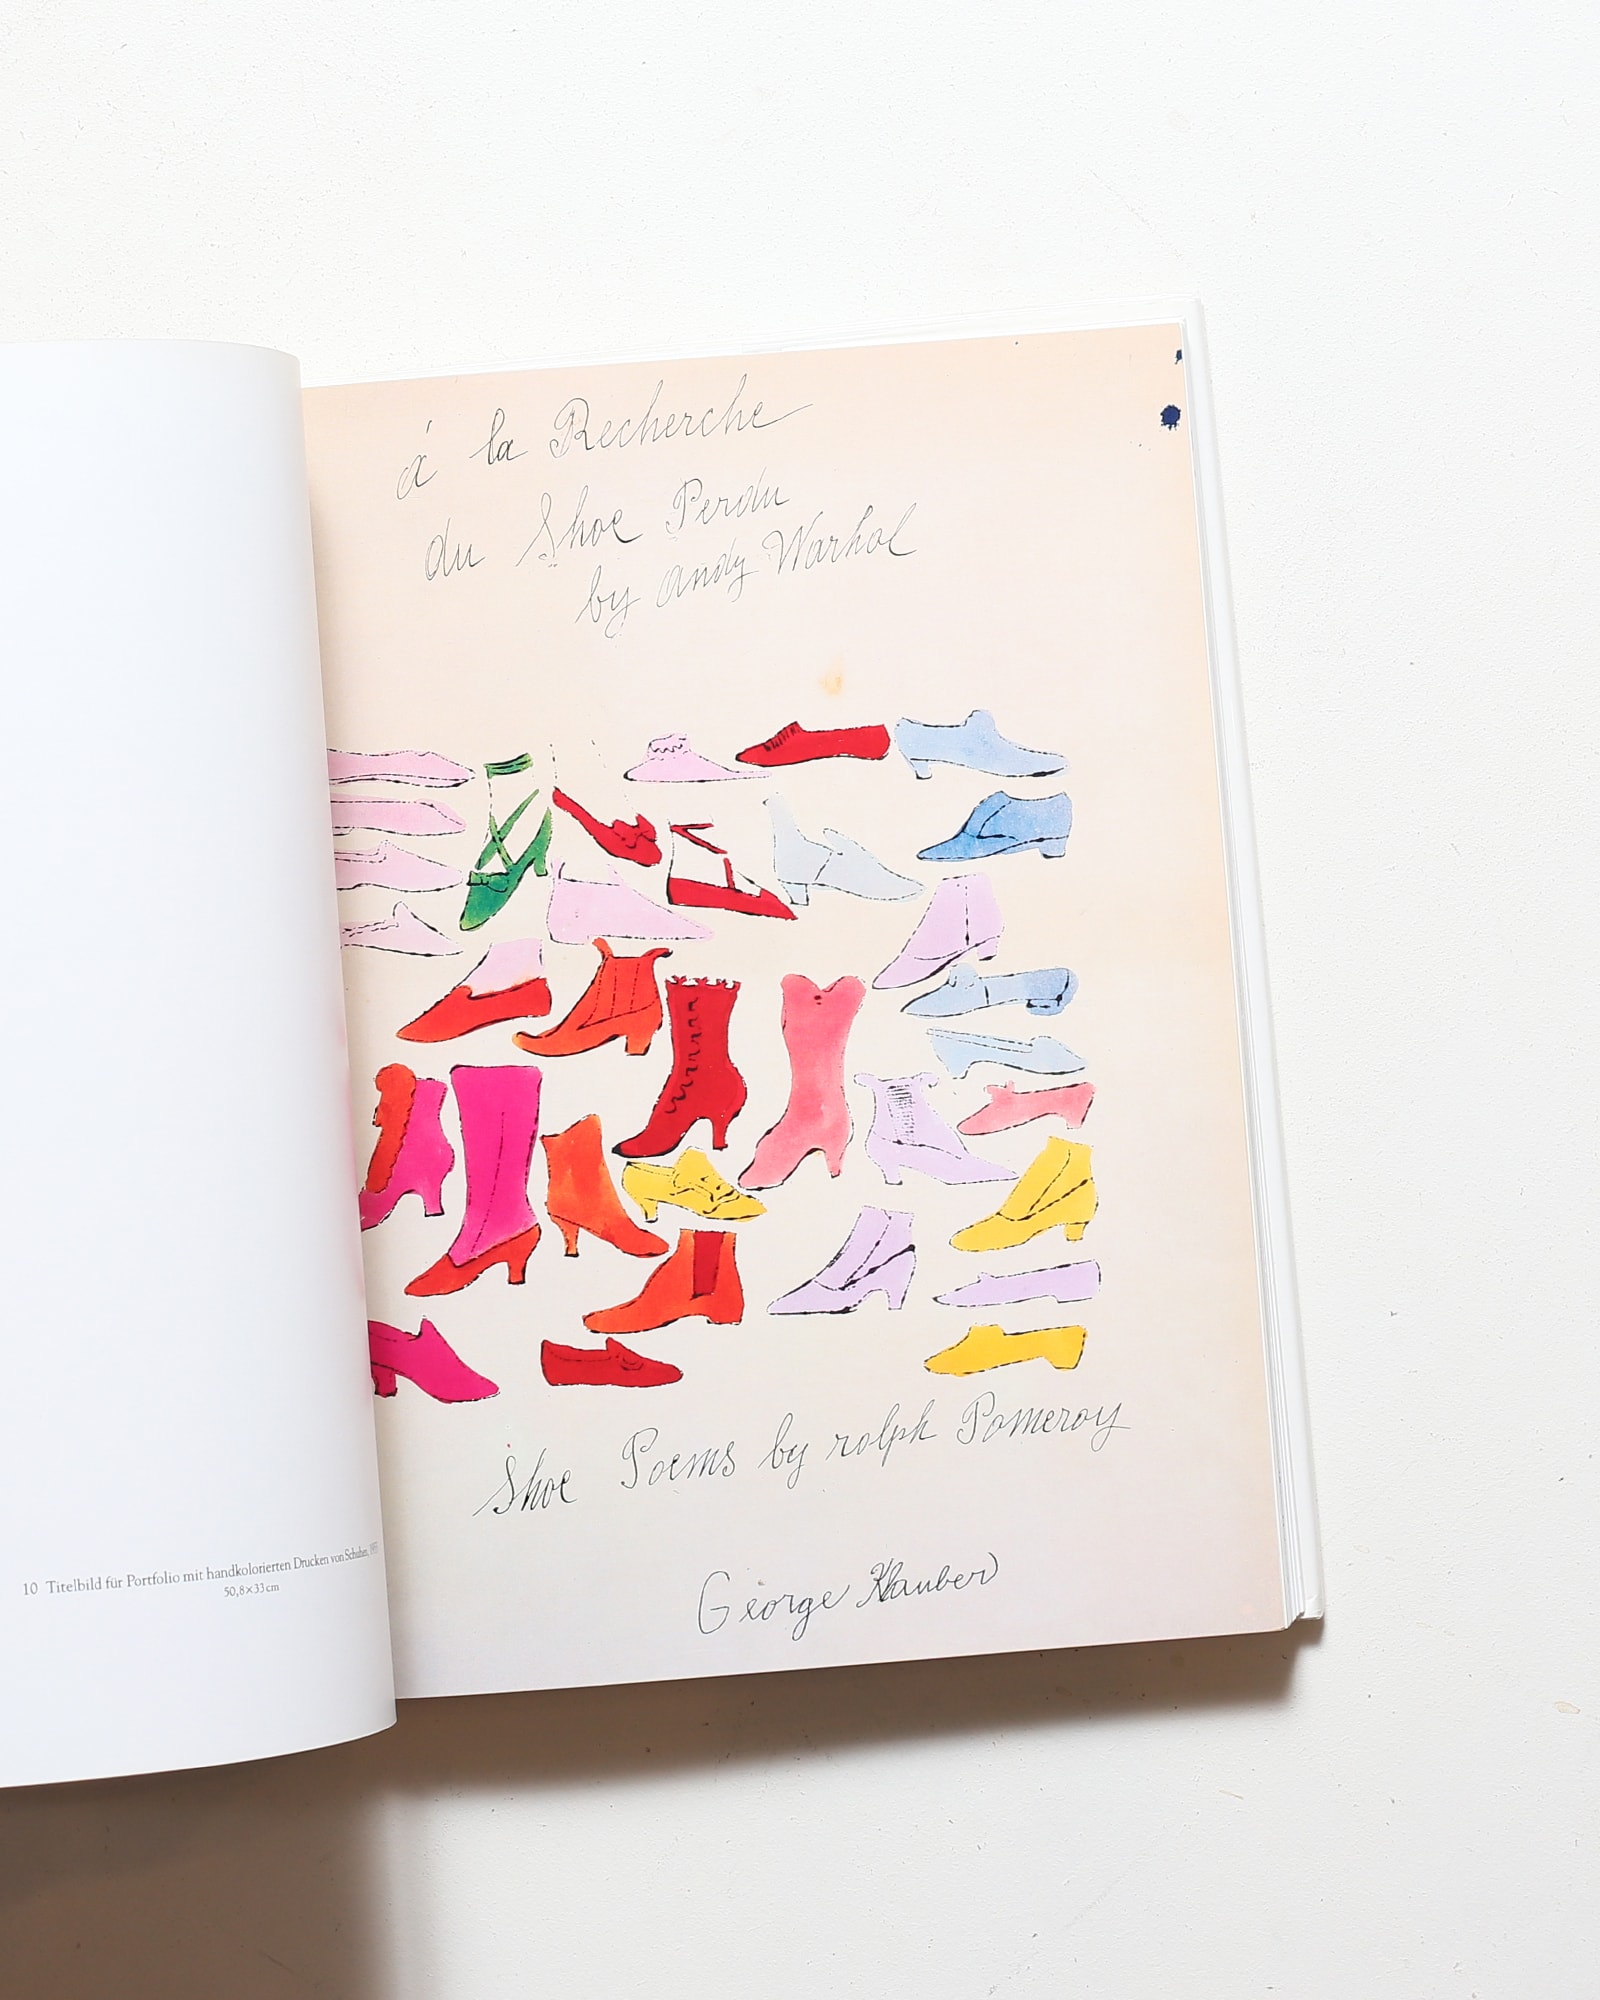 á la Recherche
du Shoe Perdu
by andy Warhol
Shoe Poems by ralph Pomeroy
George Klauber
10 Titelbild für Portfolio mit handkolorierten Drucken von Schuhen, 1955
50,8×33 cm